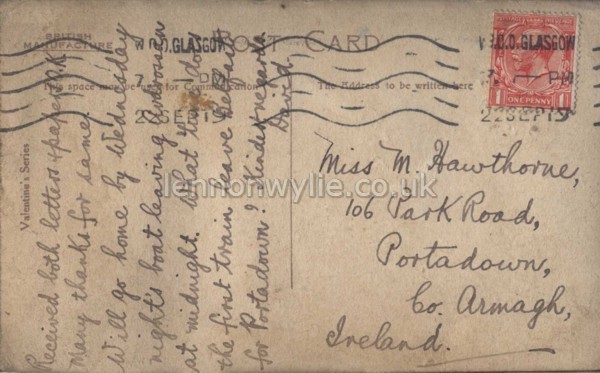 BRITISH
MANUFACTURE
POST CARD
This space may be used for Communication
The Address to be written here
Valentine's Series
W.O.O. GLASGOW
7 - PM
22 SEP 19
W.O.O. GLASGOW
7 - PM
22 SEP 19
ONE PENNY
Received both letters & paper O.K.
Many thanks for same.
Will go home by Wednesday
night's boat leaving
at midnight. What time does
the first train leave Belfast
for Portadown? Kindest regards
David
Miss M. Hawthorne,
106 Park Road,
Portadown,
Co. Armagh,
Ireland.
lennonwylie.co.uk